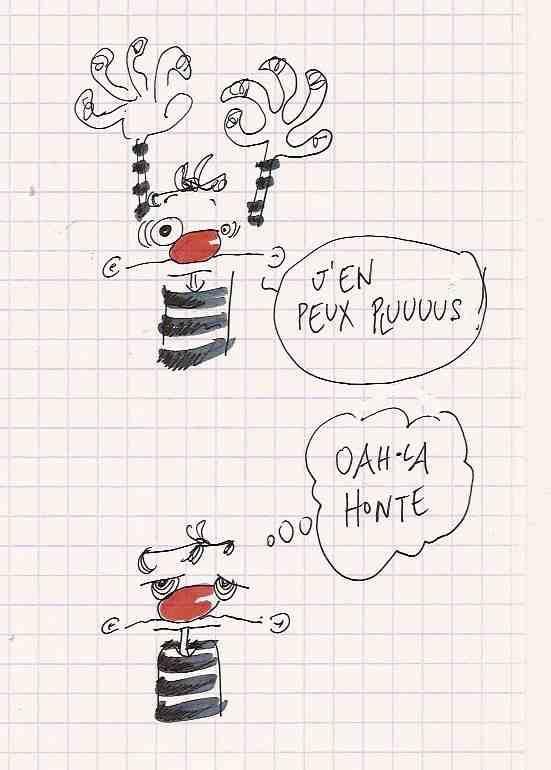 J'EN
PEUX PLUUUUS
OAH-LA
HONTE